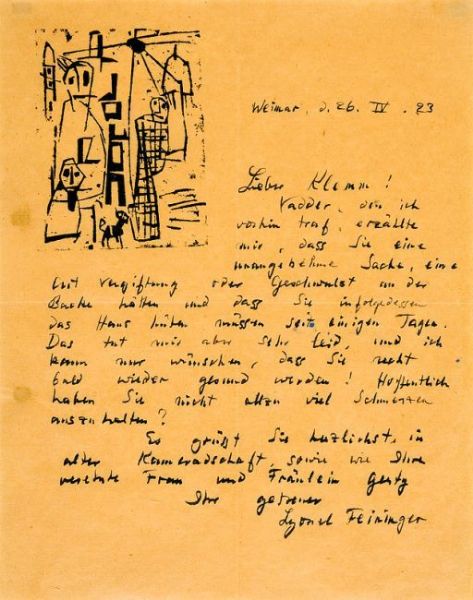 Weimar, d. 26. IV. 23
Lieber Klemm!
Vadder, den ich
vorhin traf, erzählte
mir, dass Sie eine
unangenehme Sache, eine
Blutvergiftung oder Geschwulst an der
Backe hätten und dass Sie infolgedessen
das Haus hüten müssen seit einigen Tagen.
Das tut mir aber sehr leid, und ich
kann nur wünschen, dass Sie recht
bald wieder gesund werden! Hoffentlich
haben Sie nicht allzu viel Schmerzen
auszuhalten?
Es grüßt Sie herzlichst, in
alter Kameradschaft, sowie wie Ihre
verehrte Frau und Fräulein
Ihr getreuer
Lyonel Feininger